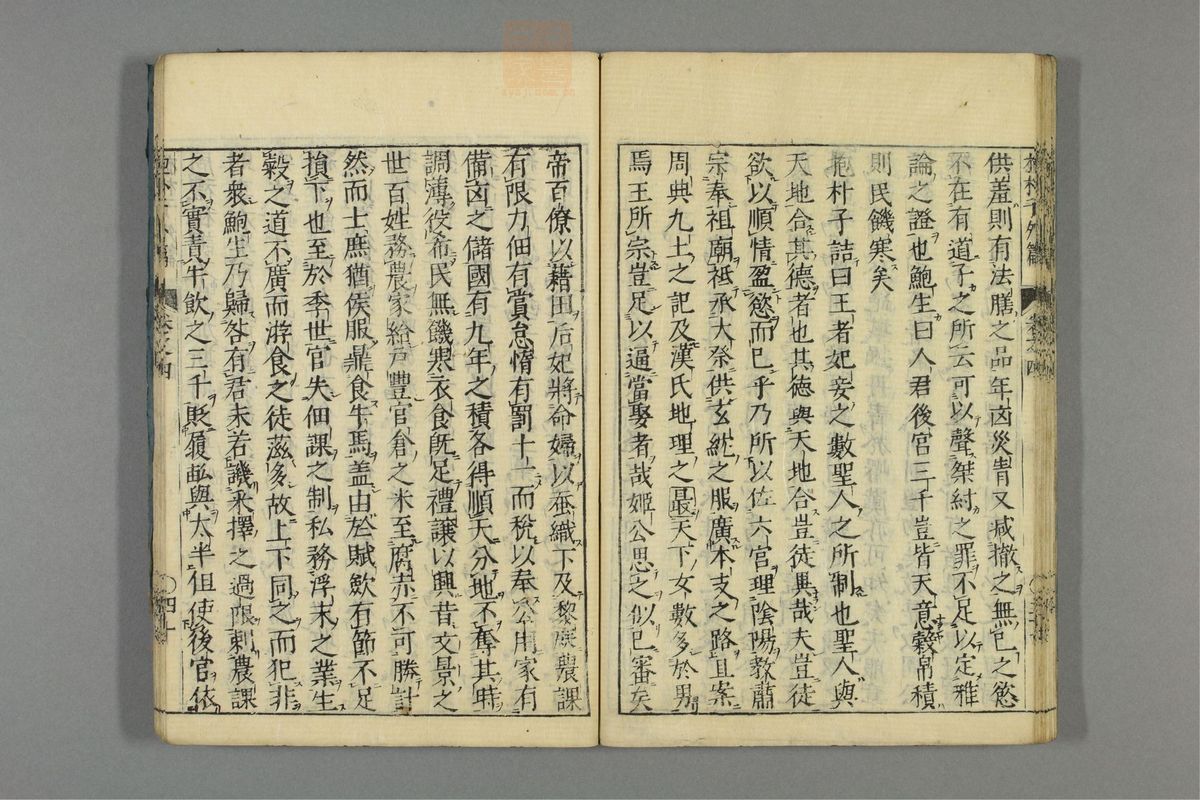 供羞則有法膳之品年凶災眚又减撤之無已之慾
不在有道子之所云可以聲桀紂之罪不足以定雅
論之證也鮑生曰人君後宮三千豈皆天意穀帛積
則民饑寒矣
抱朴子詰曰王者妃妾之數聖人之所制也聖人與
天地合其德者也其德與天地合豈徒異哉夫豈徒
欲以順情盈慾而已乎乃所以佐六宮理陰陽教肅
宗奉祖廟祗承大祭供玄紞之服廣本支之路且案
周典九土之記及漢氏地理之最天下女數多於男
焉王所宗豈足以逼當娶者哉姬公思之似已審矣
帝百僚以藉田后妃將命婦以蚕織下及黎庶農課
有限力佃有賞怠惰有罰十一而稅以奉公用家有
備凶之儲國有九年之積各得順天分地不奪其時
調薄役希民無饑寒衣食旣足禮讓以興昔文景之
世百姓務農家給戶豐官倉之米至腐赤不可勝計
然而士庶猶侯服鼎食牛馬盖由於賦歛有節不足
損下也至於季世官失佃課之制私務浮末之業生
穀之道不廣而游食之徒滋多故上下同之而犯非
者衆鮑生乃歸咎有君未若譏采擇之過限刺農課
之不實責牛飲之三千貶履畝與太半但使後宮依
抱朴子外篇
卷之四
四十